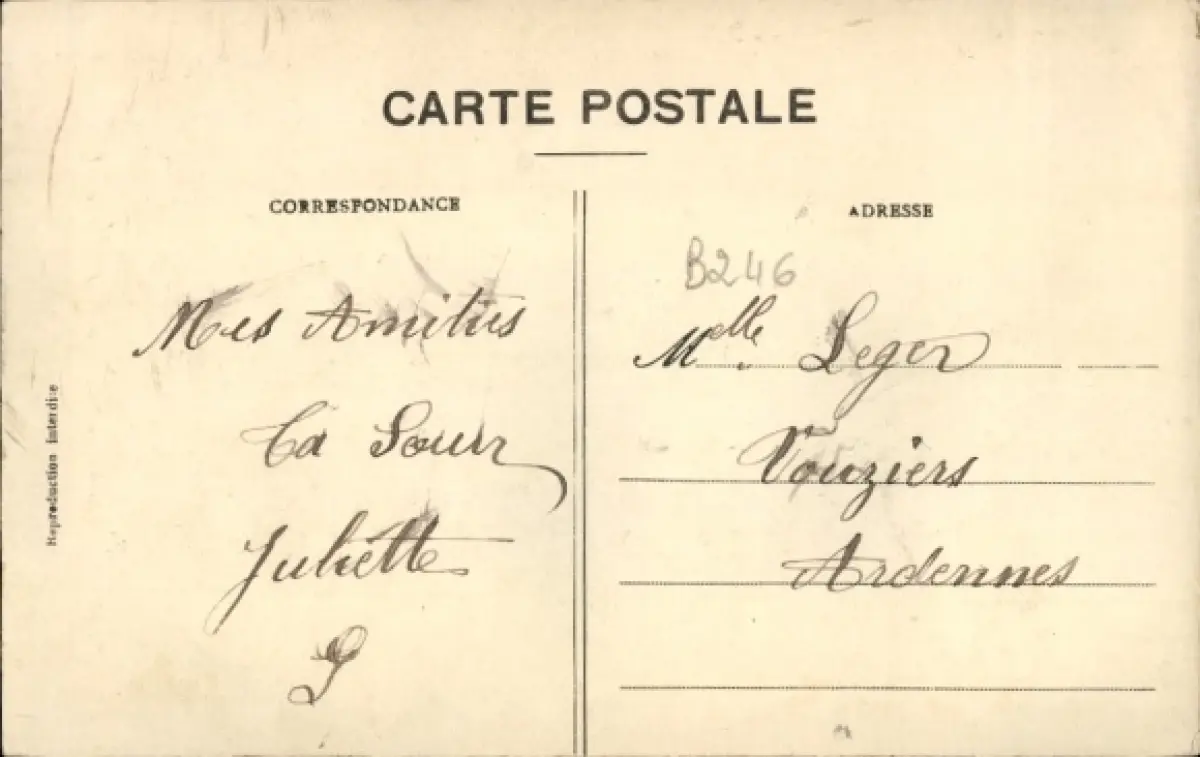 CARTE POSTALE
CORRESPONDANCE
Mes Amitiés
Ta Soeur
Juliette
Reproduction interdite
ADRESSE
B246
Melle Leger
Vouziers
Ardennes